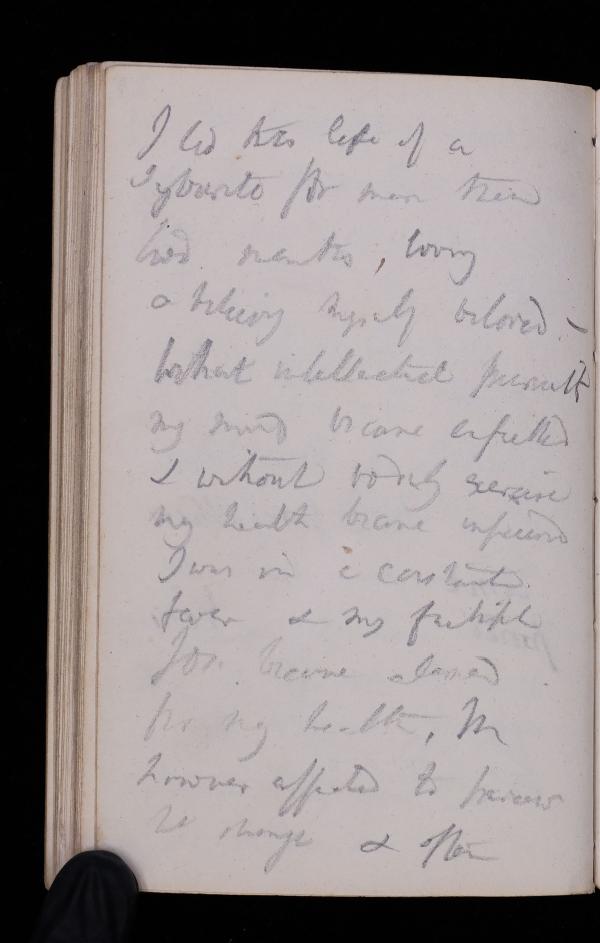 I led this life of a
Sybarite for more than
two months, loving
& believing myself beloved -
Without intellectual pursuits
my mind became enfeebled
& without bodily exercise
my health became
I was in a constant
fever & my faithful
became alarmed
for my health,
however affected to perceive
no change & often